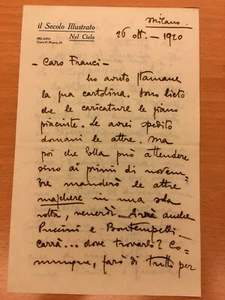 il Secolo Illustrato
Nel Cielo
MILANO
Milano.
26 ott. — 1920
— Caro Franci —
ho avuto stamane
la sua cartolina. Son lieto
che le caricature le siano
piaciute. Le avrei spedito
domani le altre. Ma
poi che Ella può attendere
sino ai primi di novem-
bre manderò le altre
maschere in una sola
volta, venerdì. Avrà anche
Puccini e Bontempelli.
Carrà... dove trovarlo? Co-
munque, farò di tutto per